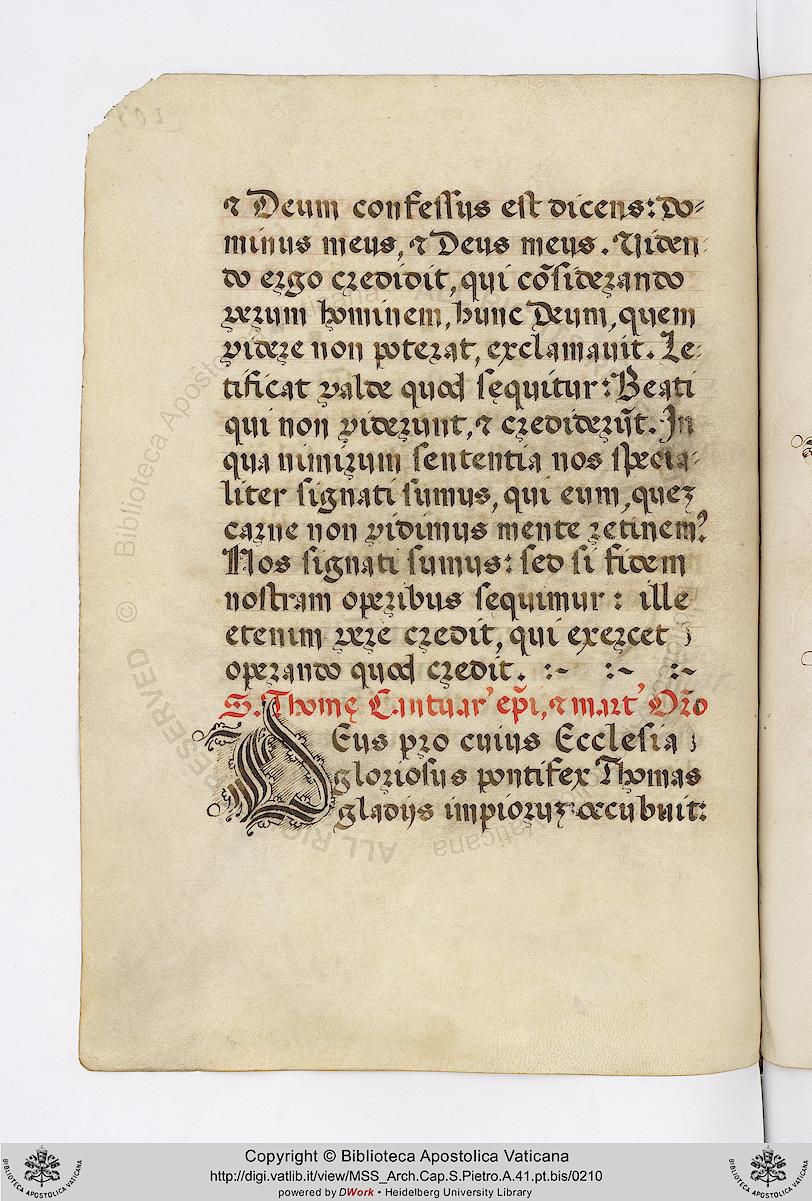 ⁊ Deum confessus est dicens: Do-
minus meus, ⁊ Deus meus. Viden-
do ergo credidit, qui cõsiderando
verum hominem, hunc Deum, quem
videre non poterat, exclamavit. Le-
tificat valde quod sequitur: Beati
qui non viderunt, ⁊ crediderũt. In
qua nimirum sententia nos specia-
liter signati sumus, qui eum, queʒ
carne non vidimus mente retinemꝰ
Nos signati sumus: sed si fidem
nostram operibus sequimur: ille
etenim vere credit, qui exercet
operando quod credit. :~ :~ :~
S. Thomę Cantuar' ep̃i, ⁊ mart' Or̃o
Deus pro cuius Ecclesia
gloriosus pontifex Thomas
gladijs impioruʒ occubuit:
© Biblioteca Apostolica Vaticana
ALL RIGHTS RESERVED
Copyright © Biblioteca Apostolica Vaticana
http://digi.vatlib.it/view/MSS_Arch.Cap.S.Pietro.A.41.pt.bis/0210
powered by DWork • Heidelberg University Library
BIBLIOTECA APOSTOLICA VATICANA
BIBLIOTECA APOSTOLICA VATICANA